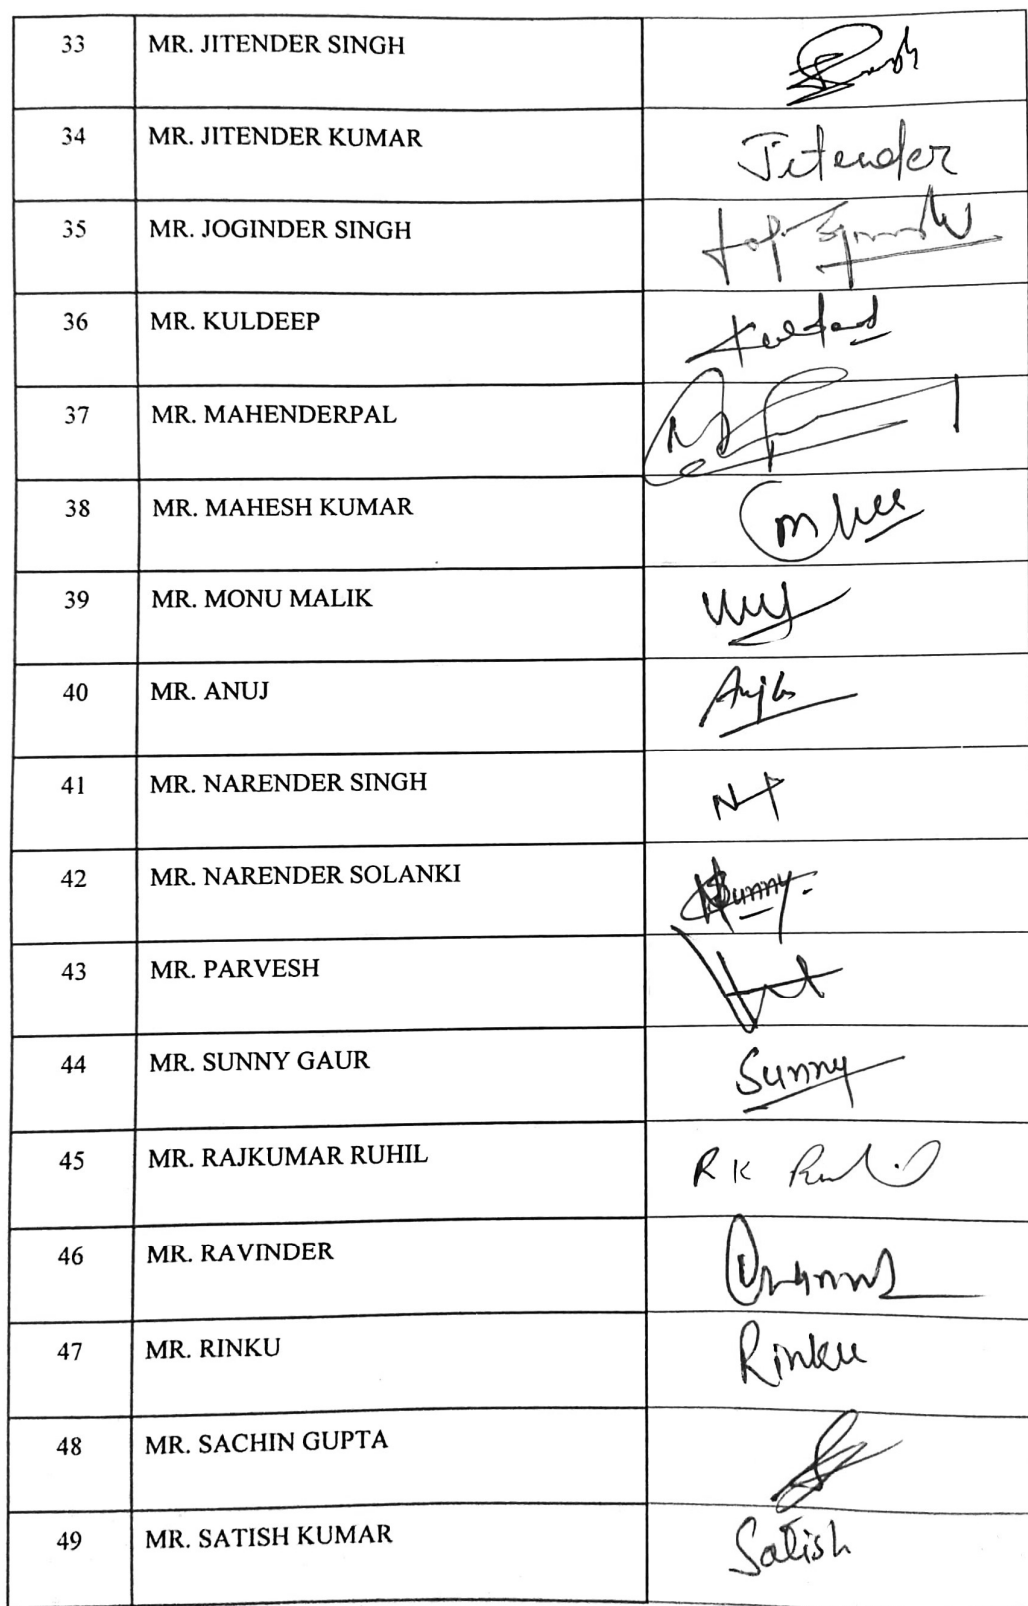 33 MR. JITENDER SINGH
34 MR. JITENDER KUMAR Jitender
35 MR. JOGINDER SINGH
36 MR. KULDEEP
37 MR. MAHENDERPAL
38 MR. MAHESH KUMAR
39 MR. MONU MALIK
40 MR. ANUJ
41 MR. NARENDER SINGH
42 MR. NARENDER SOLANKI Sunny
43 MR. PARVESH
44 MR. SUNNY GAUR Sunny
45 MR. RAJKUMAR RUHIL R K
46 MR. RAVINDER
47 MR. RINKU Rinku
48 MR. SACHIN GUPTA
49 MR. SATISH KUMAR Satish